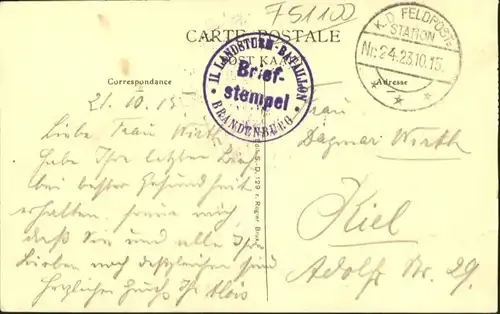 751100
CARTE POSTALE
POST KAA
Correspondance
Adresse
II. LANDSTURM-BATAILLON
Brief-
stempel
* BRANDENBURG *
K.D. FELDPOST-
STATION
Nr. 24. 23.10.15.
21.10.15
Liebe Frau Wirth
Habe Ihren letzten Brief
bei bester Gesundheit
erhalten, freue mich,
daß Sie und alle Ihre
Lieben noch desgleichen sind
Herzlichen Gruß Ihr Alois
Frau
Dagmar Wirth
Kiel
Adolfstr. Nr. 29.